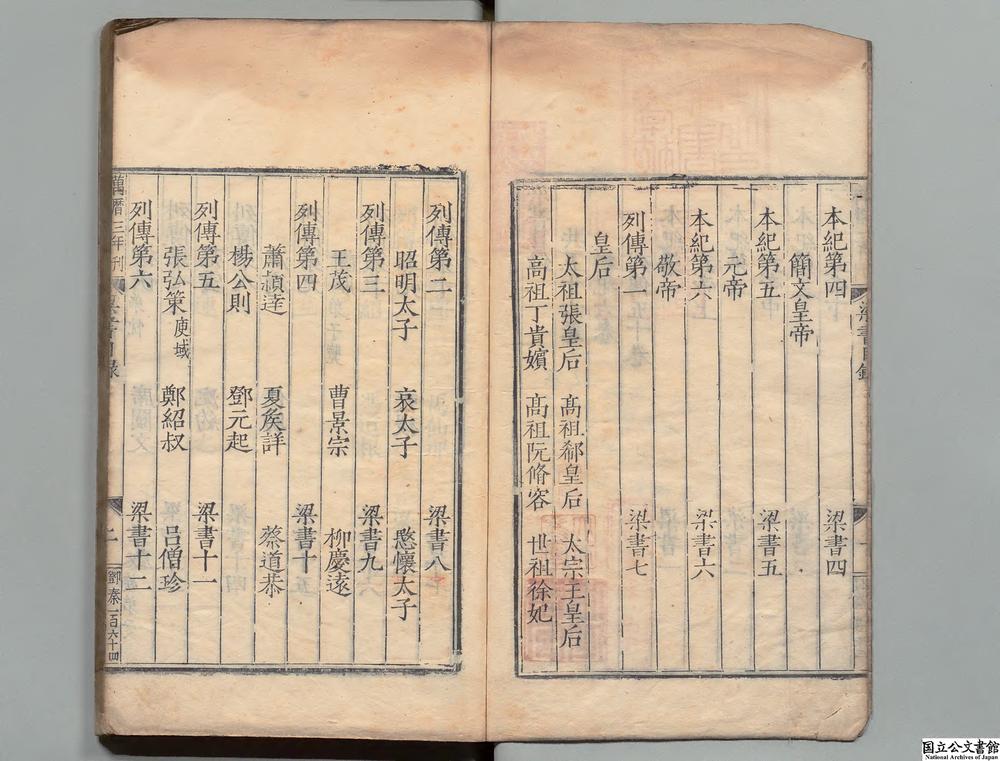 本紀第四 梁書四
簡文皇帝
本紀第五 梁書五
元帝
本紀第六 梁書六
敬帝
列傳第一 梁書七
皇后
太祖張皇后 髙祖郗皇后 太宗王皇后
高祖丁貴嬪 髙祖阮脩容 世祖徐妃
列傳第二 梁書八
昭明太子 哀太子 愍懷太子
列傳第三 梁書九
王茂 曹景宗 柳慶遠
列傳第四 梁書十
蕭穎達 夏矦詳 蔡道恭
楊公則 鄧元起
列傳第五 梁書十一
張弘策 庾域 鄭紹叔 吕僧珍
列傳第六 梁書十二
萬曆三年刊 梁書目錄 二 劉秦 一百六十四
国立公文書館
National Archives of Japan